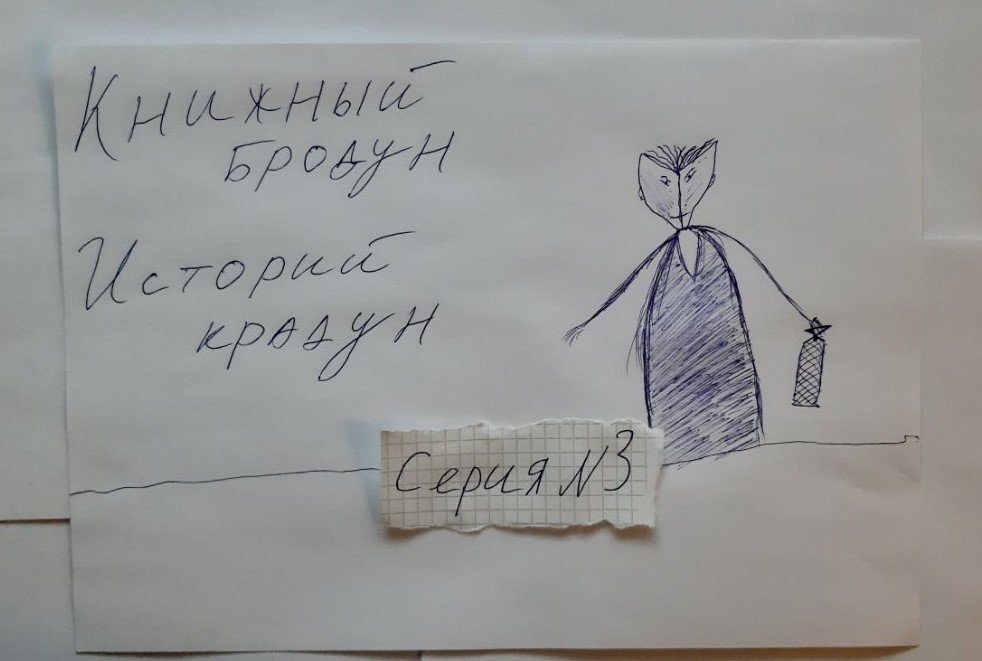 Книжный
бродун
Историй
крадун
Серия N3